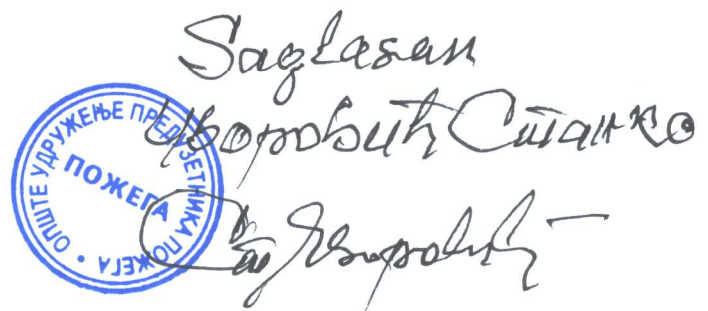 Saglasan
Цворовић Станко
ОПШТЕ УДРУЖЕЊЕ ПРЕДУЗЕТНИКА ПОЖЕГА •
ПОЖЕГА